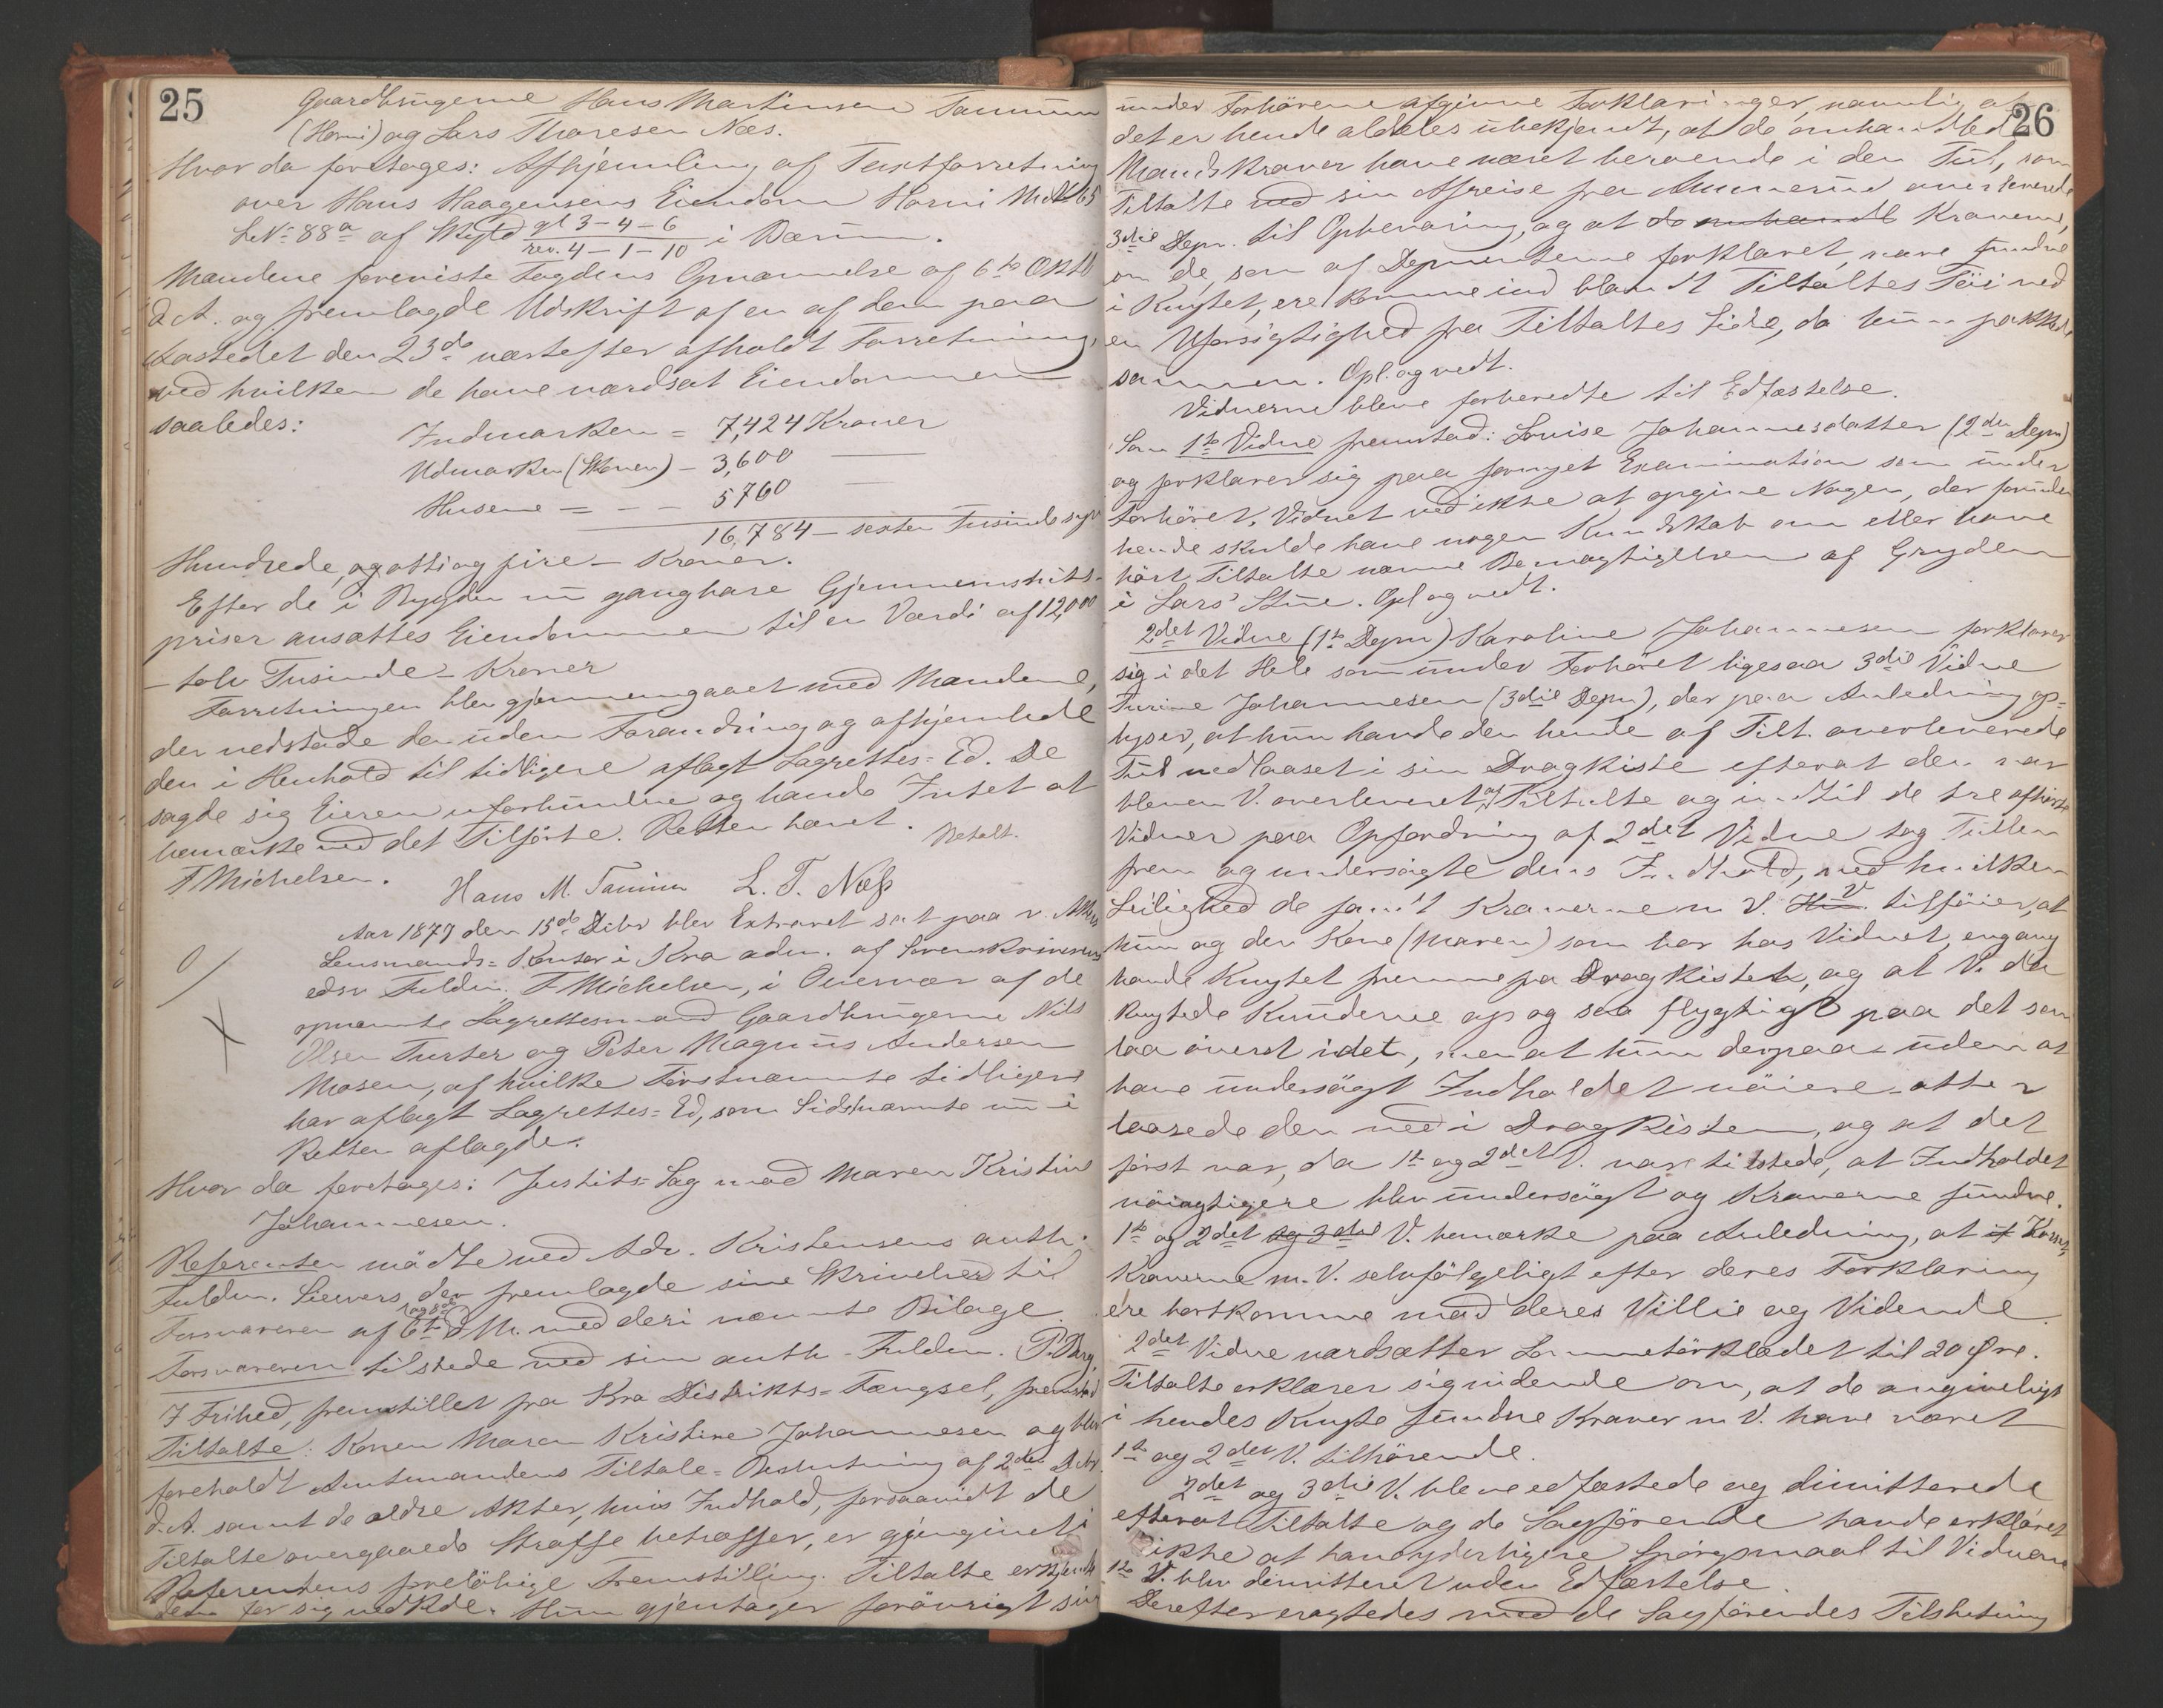 25
Gaardbrugerne Hans Martinsen Tanum
(Horni) og Lars Thoresen Næs.
Hvor da foretages: Afhjemling af Taxtforretning
over Hans Haagensens Eiendom Horni M.No 65
L.No 88a af Skyld gl 3-4-6 i Bærum.
rev. 4-1-10
Mændene foreviste Fogdens Opnævnelse af 6te Oktb
d.A. og fremlagde Udskrift af en af dem paa
Aastedet den 23de næstefter afholdt Forretning,
ved hvilken de have værdsat Eiendommen
saaledes:
Indmarken = 7,424 Kroner
Udmarken (Skoven) - 3,600 —
Husene = - - 5760 —
16,784 - sexten Tusinde syv
Hundrede og otti og fire - Kroner.
Efter de i Bygden nu gangbare Gjennemsnits-
priser ansattes Eiendommen til en Værdi af 12,000
- tolv Tusinde - Kroner
Forretningen blev gjennemgaaet med Mændene,
der vedstode den uden Forandring og afhjemlede
den i Henhold til tidligere aflagt Lagrettes-Ed. De
sagde sig Eieren uforbundne og havde Intet at
bemærke ved det Tilførte. Retten hævet.
Betalt.
F Michelsen. Hans M. Tanum L. T. Næss
Aar 1877 den 15de Dcbr blev Extraret sat paa v. Akers
Lensmands-Kontor i Kra adm. af Sorenskriverens
edsv Fuldm. F Michelsen, i Overvær af de
opnævnte Lagrettesmænd Gaardbrugerne Nils
Olsen Furter og Peter Magnus Andersen
Mosen, af hvilke Førstnævnte tidligere
har aflagt Lagrettes-Ed, som Sidstnævnte nu i
Retten aflagde.
Hvor da foretages: Justits-Sag mod Maren Kristine
Johannesen.
Referenten mødte ved Adv. Kristensens auth.
Fuldm. Sievers, der fremlagde sine Skrivelser til
Forsvareren af 6te og 8de d.M. med deri nævnte Bilage.
Forsvareren tilstede ved sin auth. Fuldm. P. Berg.
I Frihed, fremstillet fra Kra Distrikts-Fængsel, fremstod
Tiltalte: Konen Maren Kristine Johannesen og blev
foreholdt Amtmandens Tiltale-Beslutning af 2den Dcbr
d.A. samt de ældre Akter, hvis Indhold, forsaavidt de
Tiltalte overgaaede Straffe betræffer, er gjengivet i
Referentens foreløbige Fremstilling. Tiltalte erkjendte
dem for sig vedkde. Hun gjentager forøvrigt sin
26
under Forhørene afgivne Forklaringer, navnlig at
det er hende aldeles ubekjendt, at de omhandlede
Mandskraver have været beroende i den Tul, som
Tiltalte ved sin Afreise fra Ammerud overleverede
3die Depn. til Opbevaring, og at de omhandl Kraverne,
om de, som af Deponenterne forklaret, vare fundne
i Knytet, ere komne ind blandt Tiltaltes Tøi ved
en Uforsigtighed fra Tiltaltes Side, da hun pakkede
sammen. Opl. og vedt.
Vidnerne bleve forberedte til Edfæstelse.
Som 1te Vidne fremstod: Lovise Johannesdatter (2den Depn)
og forklarer sig paa fornyet Examination som under
Forhøret. Vidnet ved ikke at opgive Nogen, der foruden
hende skulde have nogen Kundskab om eller have
hørt Tiltalte nævne Bemægtigelsen af Gryden
i Lars' Stue. Opl og vedt.
2det Vidne (1te Depn) Karoline Johannesen forklarer
sig i det Hele som under Forhøret ligesaa 3die Vidne
Turine Johannesen (3die Depn), der paa Anledning op-
lyser, at hun havde den hende af Tilt. overleverede
Tul nedlaaset i sin Dragkiste efterat den var
bleven V. overleveret af Tiltalte og indtil de tre afhørte
Vidner paa Opfordring af 2det Vidne tog Tullen
frem og undersøgte dens Indhold, ved hvilken
Leilighed de fandt Kraverne m V. Hun V tilføier, at
hun og den Kone (Maren) som bor hos Vidnet, engang
havde Knytet fremme fra Dragkisten, og at V. da
knytede Kunderne op og saa flygtigt paa det som
laa øverst i det, men at hun derpaa uden at
have undersøgt Indholdet nøiere atter
laasede den ned i Dragkisten, og at det
først var, da 1te og 2det V. vare tilstede, at Indholdet
nøiagtigere blev undersøgt og Kraverne fundne.
1te og 2det og 3die V. bemærke paa Anledning, at if
Kraverne m.V. selvfølgeligt efter deres Forklaring
ere bortkomne mod deres Villie og Vidende.
2det Vidne værdsætter Lommetørklædet til 20 Øre.
Tiltalte erklærer sig uvidende om, at de angiveligt
i hendes Knyte fundne Kraver m V. have været
1te og 2det V. tilhørende.
2det og 3die V. bleve edfæstede og dimitterede
efterat Tiltalte og de Sagførende havde erklæret
ikke at have yderligere Spørgsmaal til Vidnerne
1te V. blev dimitteret uden Edfæstelse.
Derefter eragtedes med de Sagførendes Tilslutning